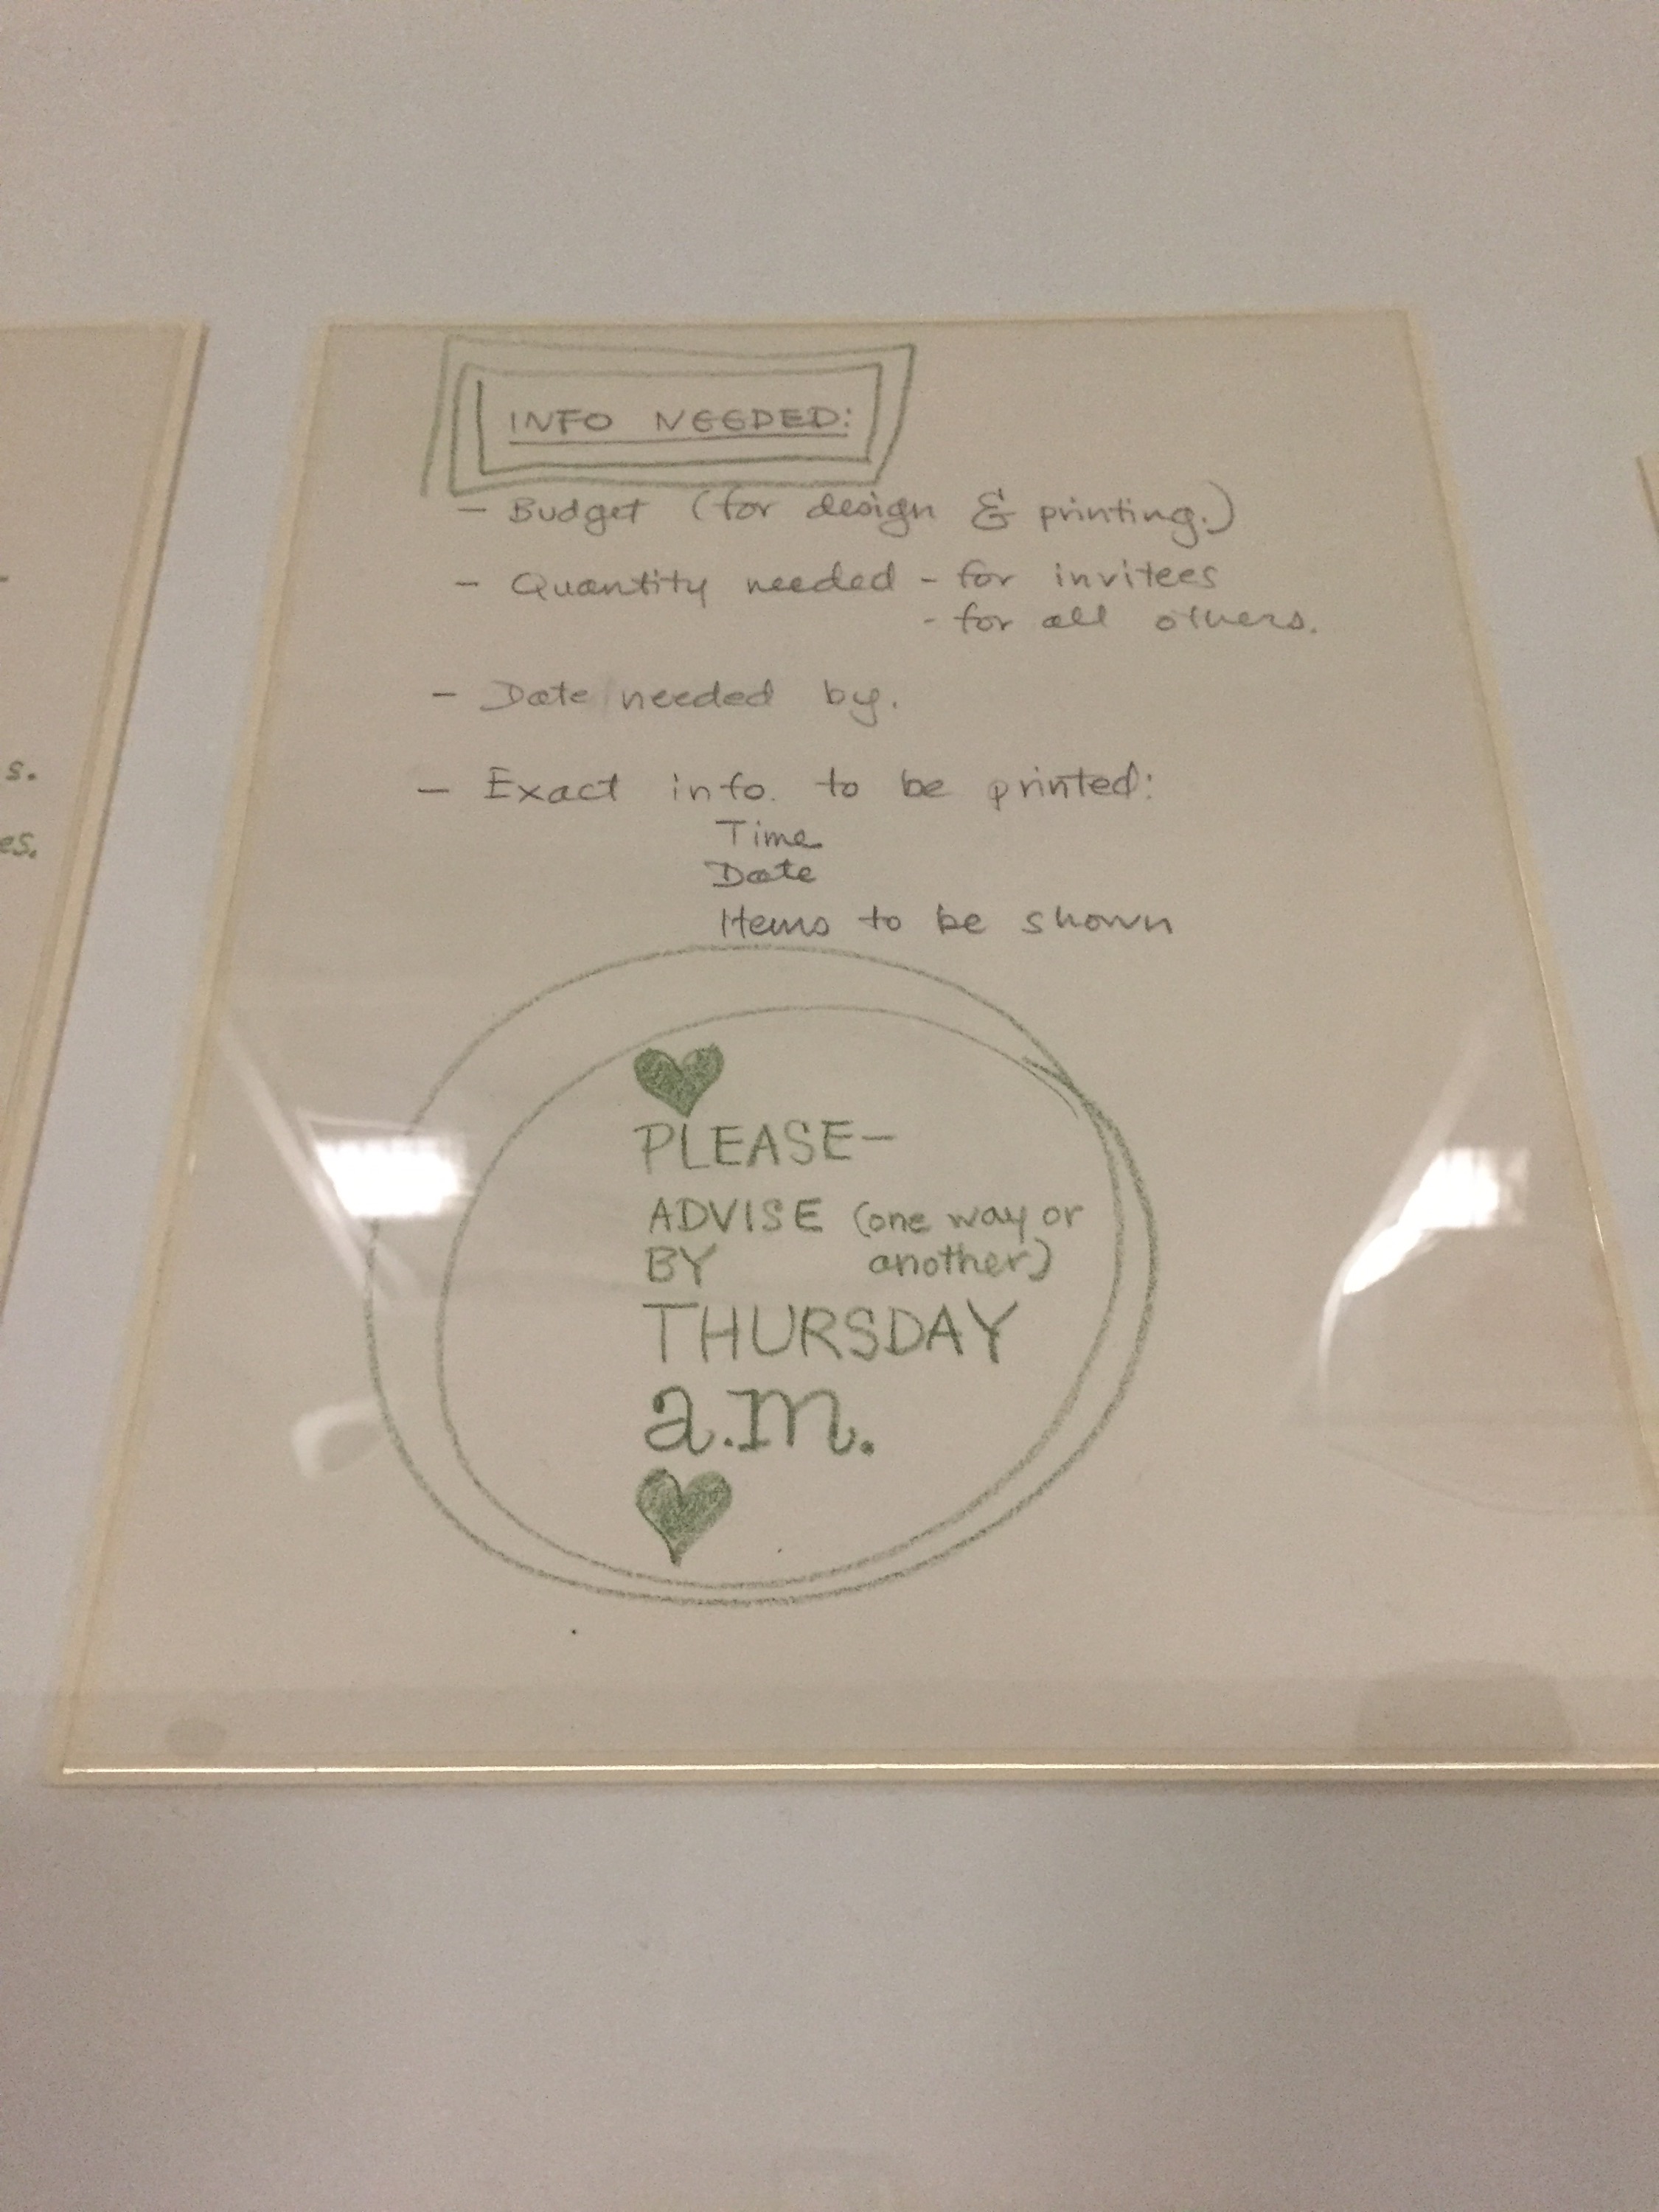 INFO NEEDED:
— Budget (for design & printing.)
— Quantity needed - for invitees
- for all others.
— Date needed by.
— Exact info. to be printed:
Time
Date
Items to be shown
PLEASE—
ADVISE (one way or
BY another)
THURSDAY
a.m.
s.
es.